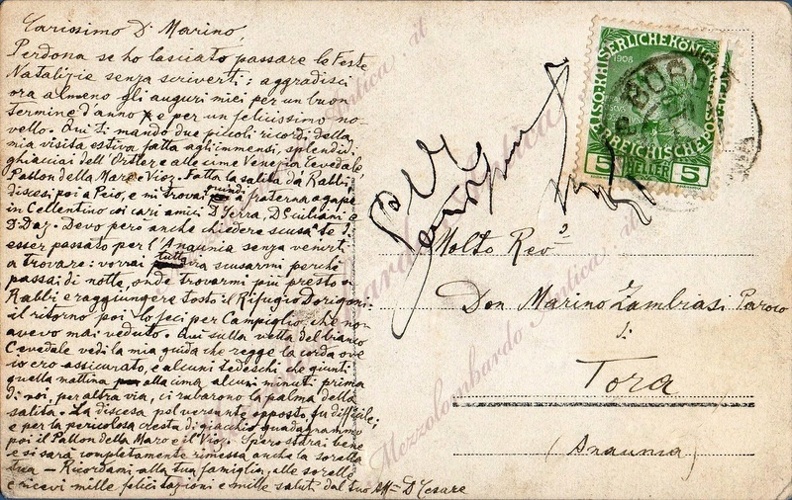 Carissimo D. Marino,
Perdona se ho lasciato passare le Feste
Natalizie senza scriverti: aggradisci
ora almeno gli auguri miei per un buon
termine d'anno e per un felicissimo no-
vello. Qui ti mando due piccoli ricordi della
mia visita estiva fatta agl'immensi, splendidi
ghiacciai dell'Ortler e alle cime Venezia, Cevedale
Pallon della Mare e Vioz. Fatta la salita da Rabbi,
discesi poi a Peio, e mi trovai quindi a fraterna agape
in Cellentino coi cari amici D. Serra, D. Siciliani e
D. Daz. Devo però anche chiedere scusa a te d'
esser passato per l'Anaunia senza venirti
a trovare: vorrai tuttavia scusarmi perchè
passai di notte, onde trovarmi più presto a
Rabbi e raggiungere tosto il Rifugio Dorigoni:
il ritorno poi lo feci per Campiglio, che non
avevo mai veduto. Qui sulla vetta del bianco
Cevedale vedi la mia guida che regge la corda ove
io ero assicurato, e alcuni tedeschi che giunti
quella mattina alla cima, alcuni minuti prima
di noi, per altra via, ci rubarono la palma della
salita. La discesa pel versante opposto fu difficile;
e per la pericolosa cresta di ghiaccio guadagnammo
poi il Pallon della Mare e il Vioz. Spero starai bene
e si sarà completamente rimessa anche la sorella
tua — Ricordami alla tua famiglia, alle sorelle
e ricevi mille felicitazioni e mille saluti dal tuo aff. D. Cesare
KAISERLICHE KÖNIGL
1908
ÖSTERREICHISCHE
5 HELLER 5
Molto Rev.
Don Marino Zambiasi Paroco
di
Tora
(Anaunia)
Mezzolombardo Antica .it